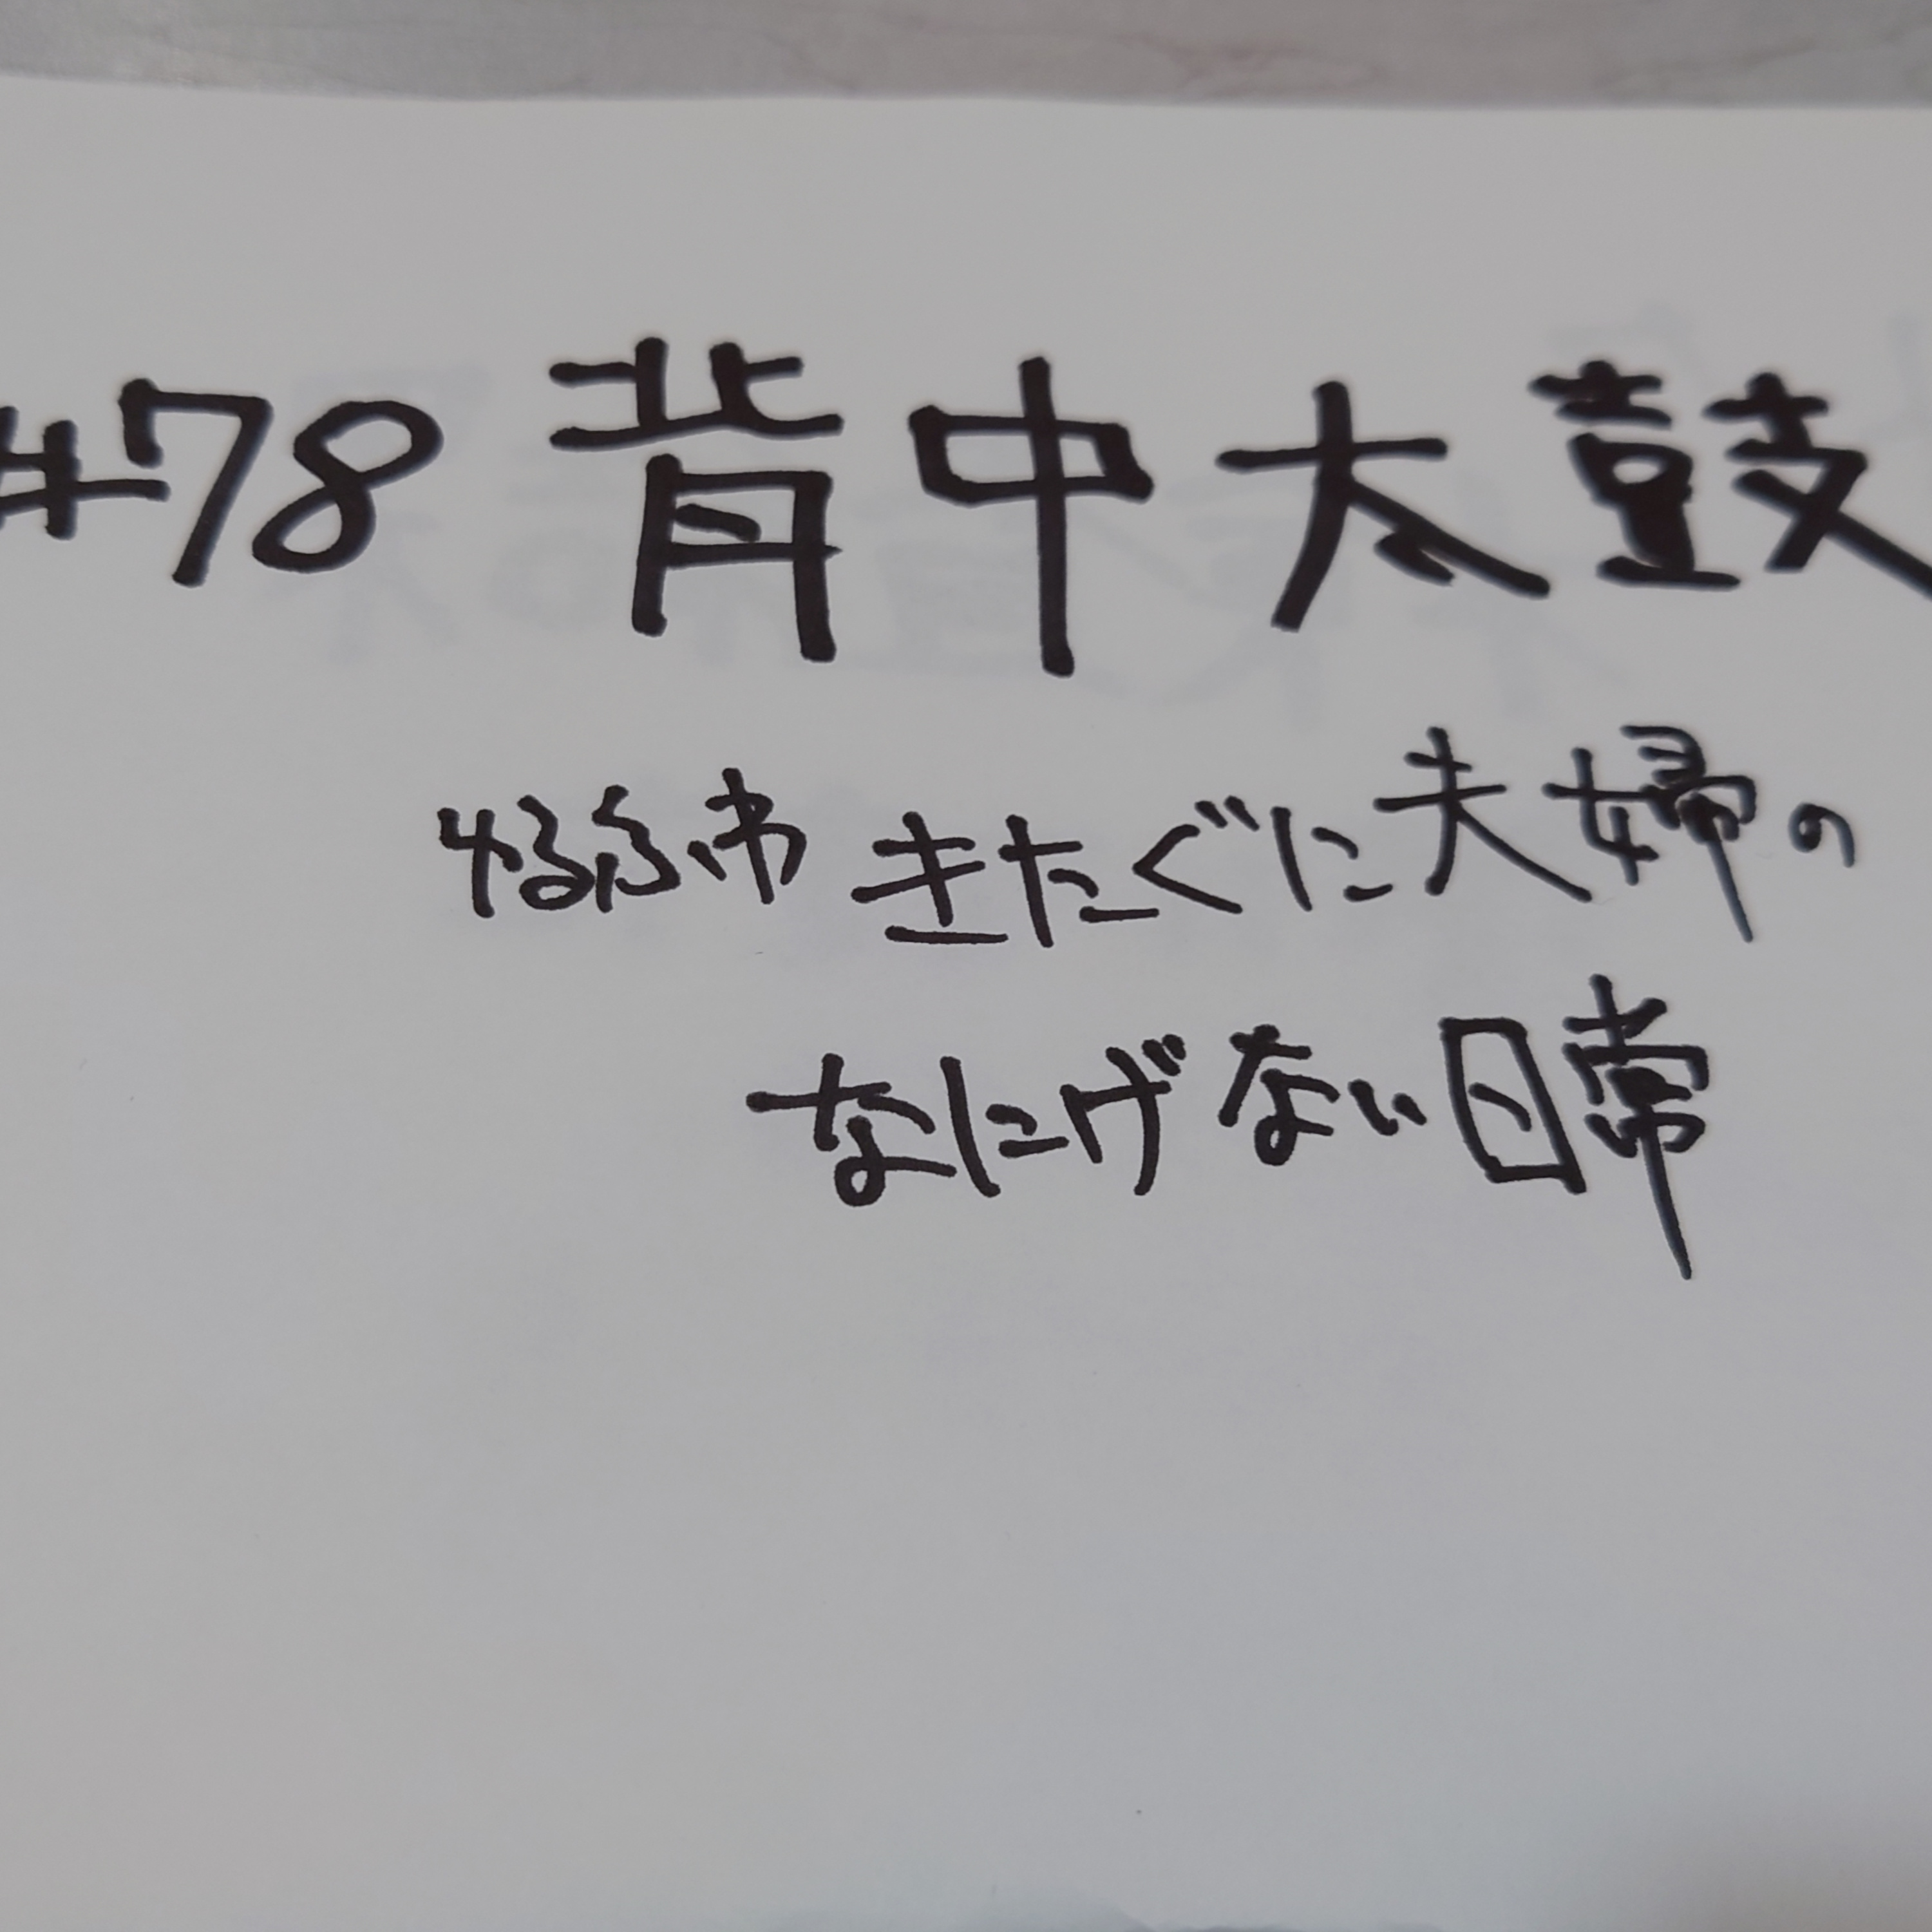 #78 背中太鼓
ゆるふわ きたぐに夫婦の
なにげない日常